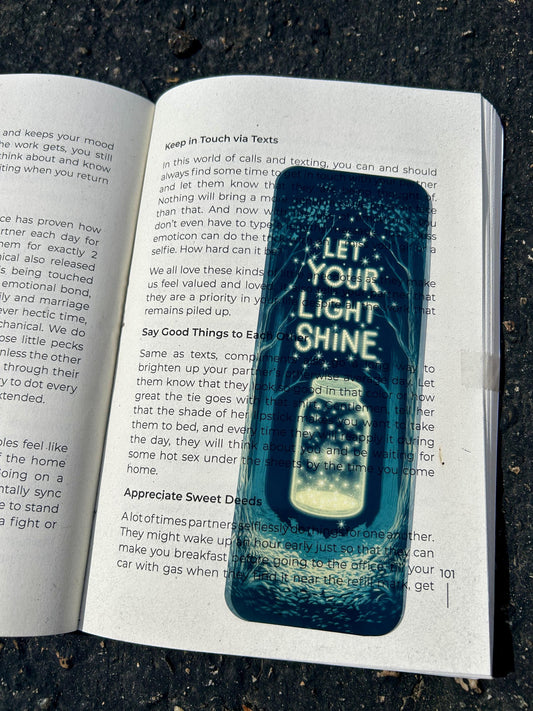 and keeps your mood
he work gets, you still
think about and know
iting when you return
ce has proven how
rtner each day for
hem for exactly 2
ical also released
s being touched
emotional bond,
ily and marriage
ever hectic time,
chanical. We do
ose little pecks
nless the other
through their
ry to dot every
xtended.
oles feel like
f the home
Going on a
ntally sync
e to stand
a fight or
Keep in Touch via Texts
In this world of calls and texting, you can and should
always find some time to get in
and let them know that
Nothing will bring a
than that. And now
don't even have to type
emoticon can do the
selfie. How hard can it be
We all love these kinds
us feel valued and loved
they are a priority in your
remains piled up.
Say Good Things to Each Other
Same as texts, compliments
brighten up your partner's
them know that they look so good in that color or how
great the tie goes with that
that the shade of her lipstick makes you want to take
them to bed, and every time they reapply it during
the day, they will think about you and be waiting for
some hot sex under the sheets by the time you come
home.
Appreciate Sweet Deeds
A lot of times partners selflessly do things for one another.
They might wake up an hour early just so that they can
make you breakfast before going to the office, fill your
car with gas when they find it near the refill mark, get
101
LET
YOUR
LIGHT
SHINE.